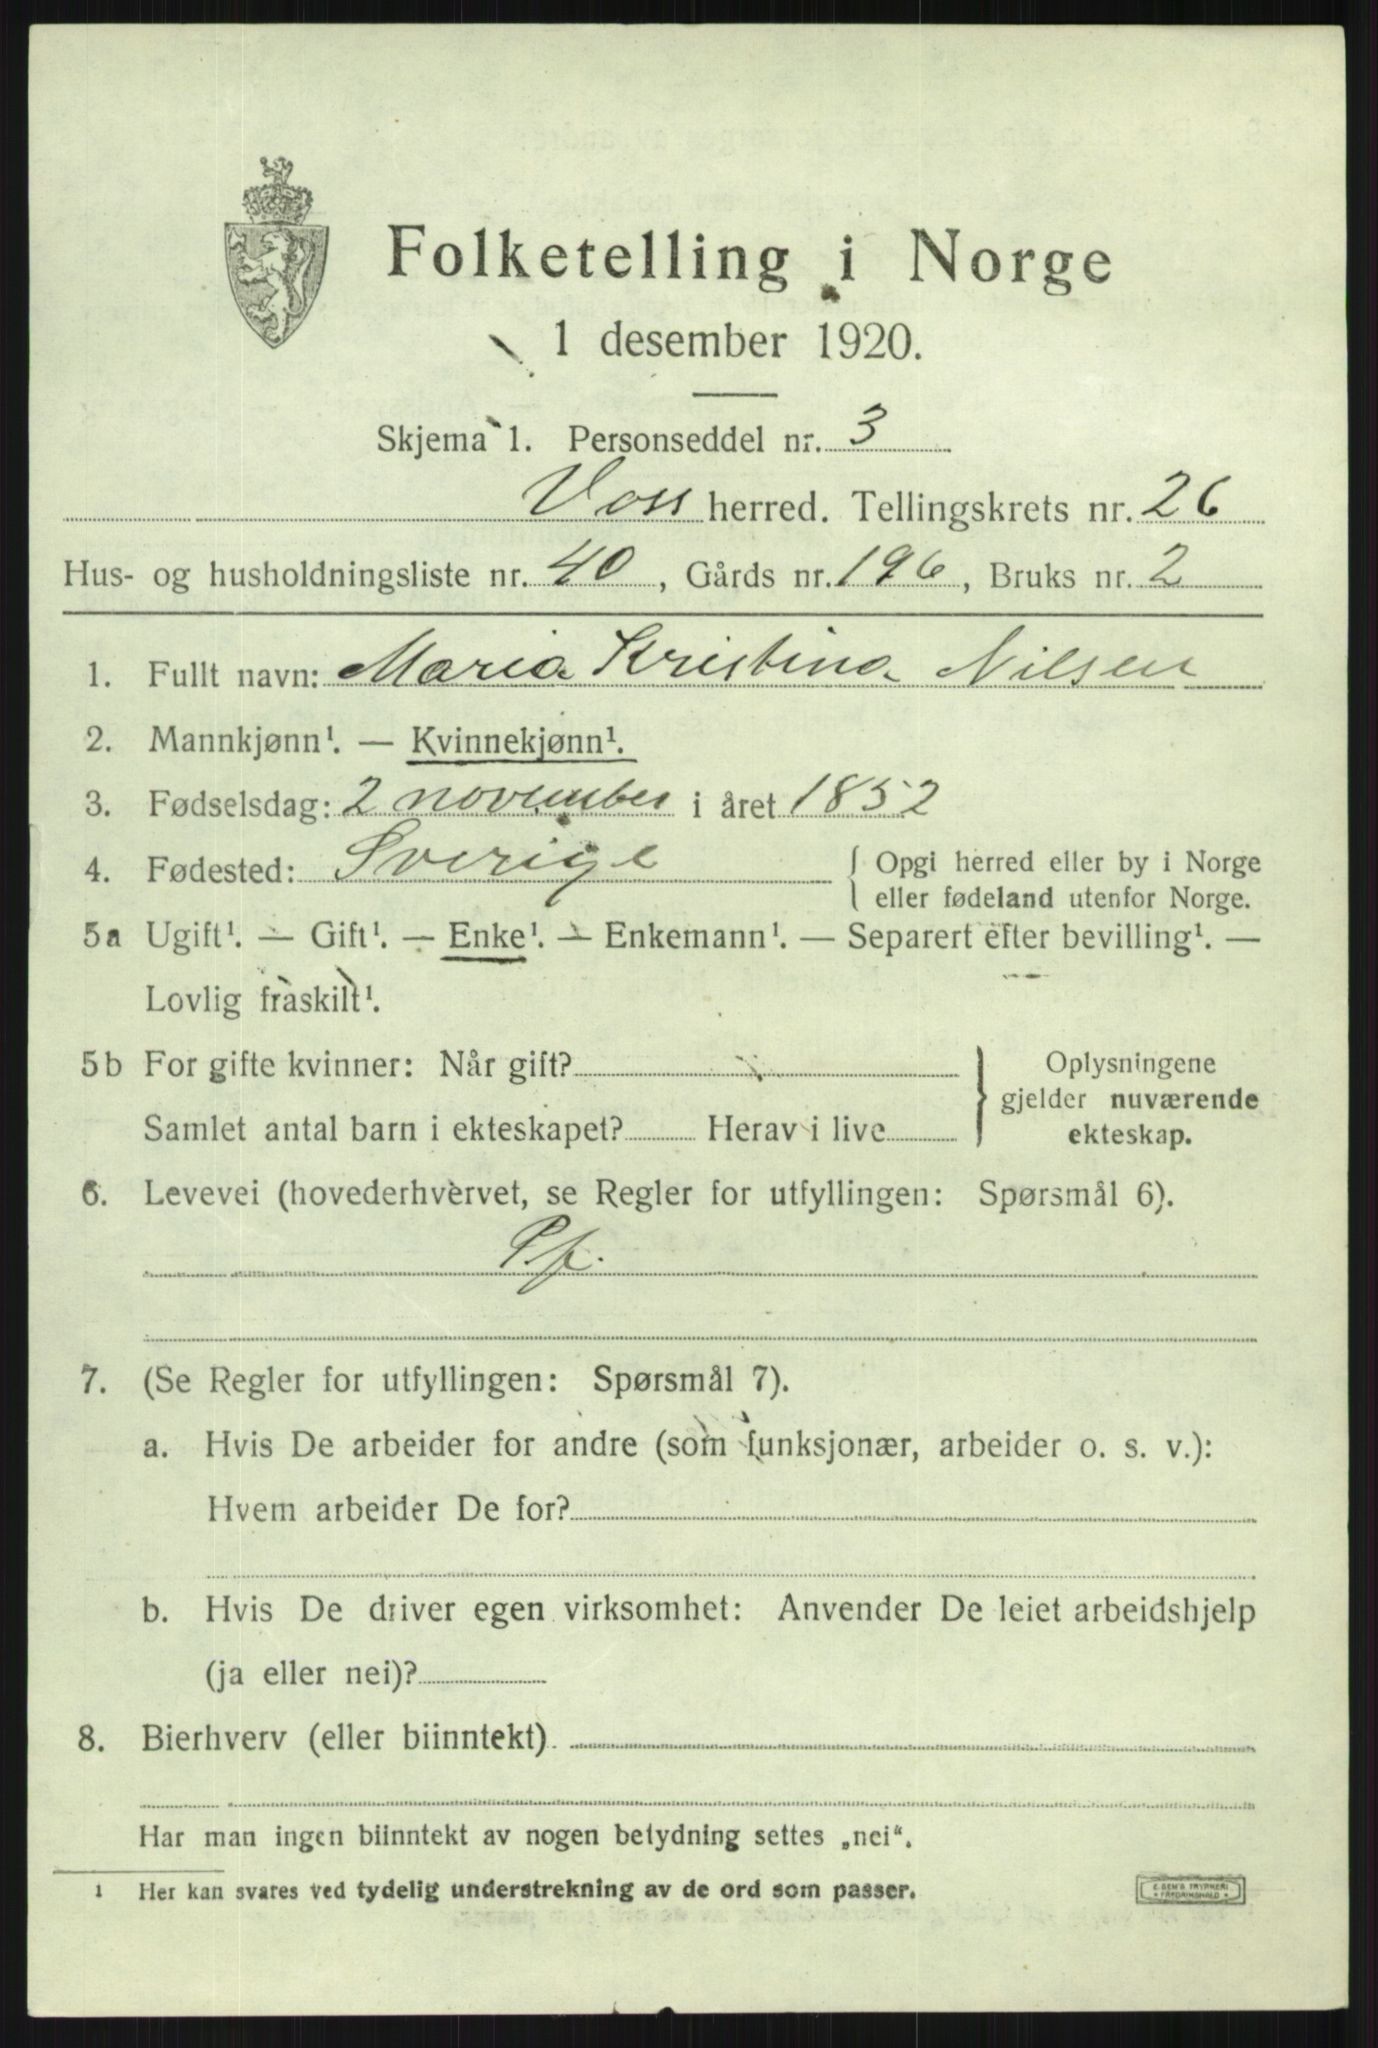 Folketelling i Norge
1 desember 1920.
Skjema 1. Personseddel nr. 3
Voss herred. Tellingskrets nr. 26
Hus- og husholdningsliste nr. 40, Gårds nr. 196, Bruks nr. 2
1. Fullt navn: Maria Kristina Nilsen
2. Mannkjønn¹. — Kvinnekjønn¹.
3. Fødselsdag: 2 november i året 1852
4. Fødested: Sverige { Opgi herred eller by i Norge
eller fødeland utenfor Norge.
5a Ugift¹. — Gift¹. — Enke¹. — Enkemann¹. — Separert efter bevilling¹. —
Lovlig fraskilt¹.
5b For gifte kvinner: Når gift? } Oplysningene
gjelder nuværende
Samlet antal barn i ekteskapet? Herav i live
ekteskap.
6. Levevei (hovederhvervet, se Regler for utfyllingen: Spørsmål 6).
P.f.
7. (Se Regler for utfyllingen: Spørsmål 7).
a. Hvis De arbeider for andre (som funksjonær, arbeider o. s. v.):
Hvem arbeider De for?
b. Hvis De driver egen virksomhet: Anvender De leiet arbeidshjelp
(ja eller nei)?
8. Bierhverv (eller biinntekt)
Har man ingen biinntekt av nogen betydning settes „nei“.
1 Her kan svares ved tydelig understrekning av de ord som passer.
E. SEM'S TRYKKERI
FREDRIKSHALD